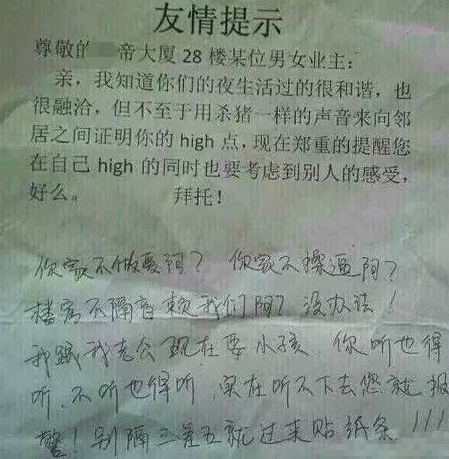 友情提示
尊敬的 帝大厦 28 楼某位男女业主：
亲，我知道你们的夜生活过的很和谐，也
很融洽，但不至于用杀猪一样的声音来向邻
居之间证明你的 high 点，现在郑重的提醒您
在自己 high 的同时也要考虑到别人的感受，
好么。 拜托！
你家不做爱阿？ 你家不操逼阿？
楼房不隔音赖我们阿？没办法！
我跟我老公现在要小孩，你听也得
听，不听也得听，实在听不下去您就报
警！别隔三差五就过来贴纸条!!!